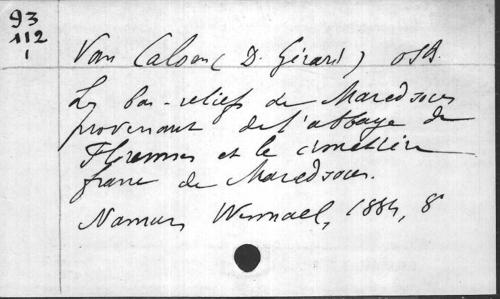 93
112
1
Van Caloen ( D. Gérard ) OSB.
Les bas-reliefs de Maredsous
provenant de l'abbaye de
Florennes et le cimetière
franc de Maredsous.
Namur, Wesmael, 1884, 8°